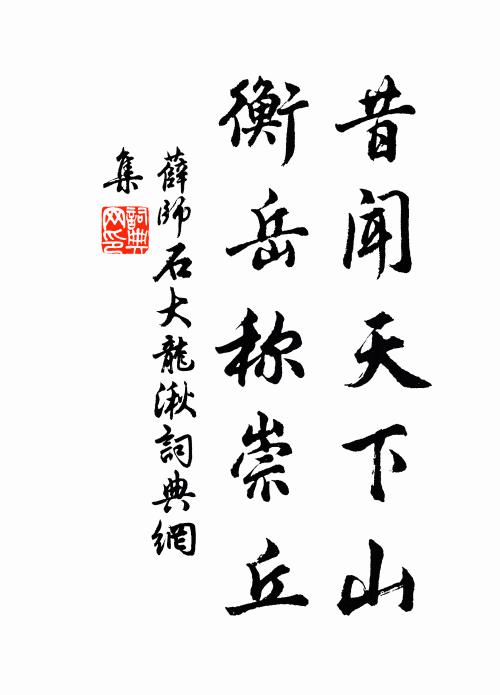 昔闻天下山
衡岳称崇丘
薛師石大龍湫詞典網
集
詞典網印